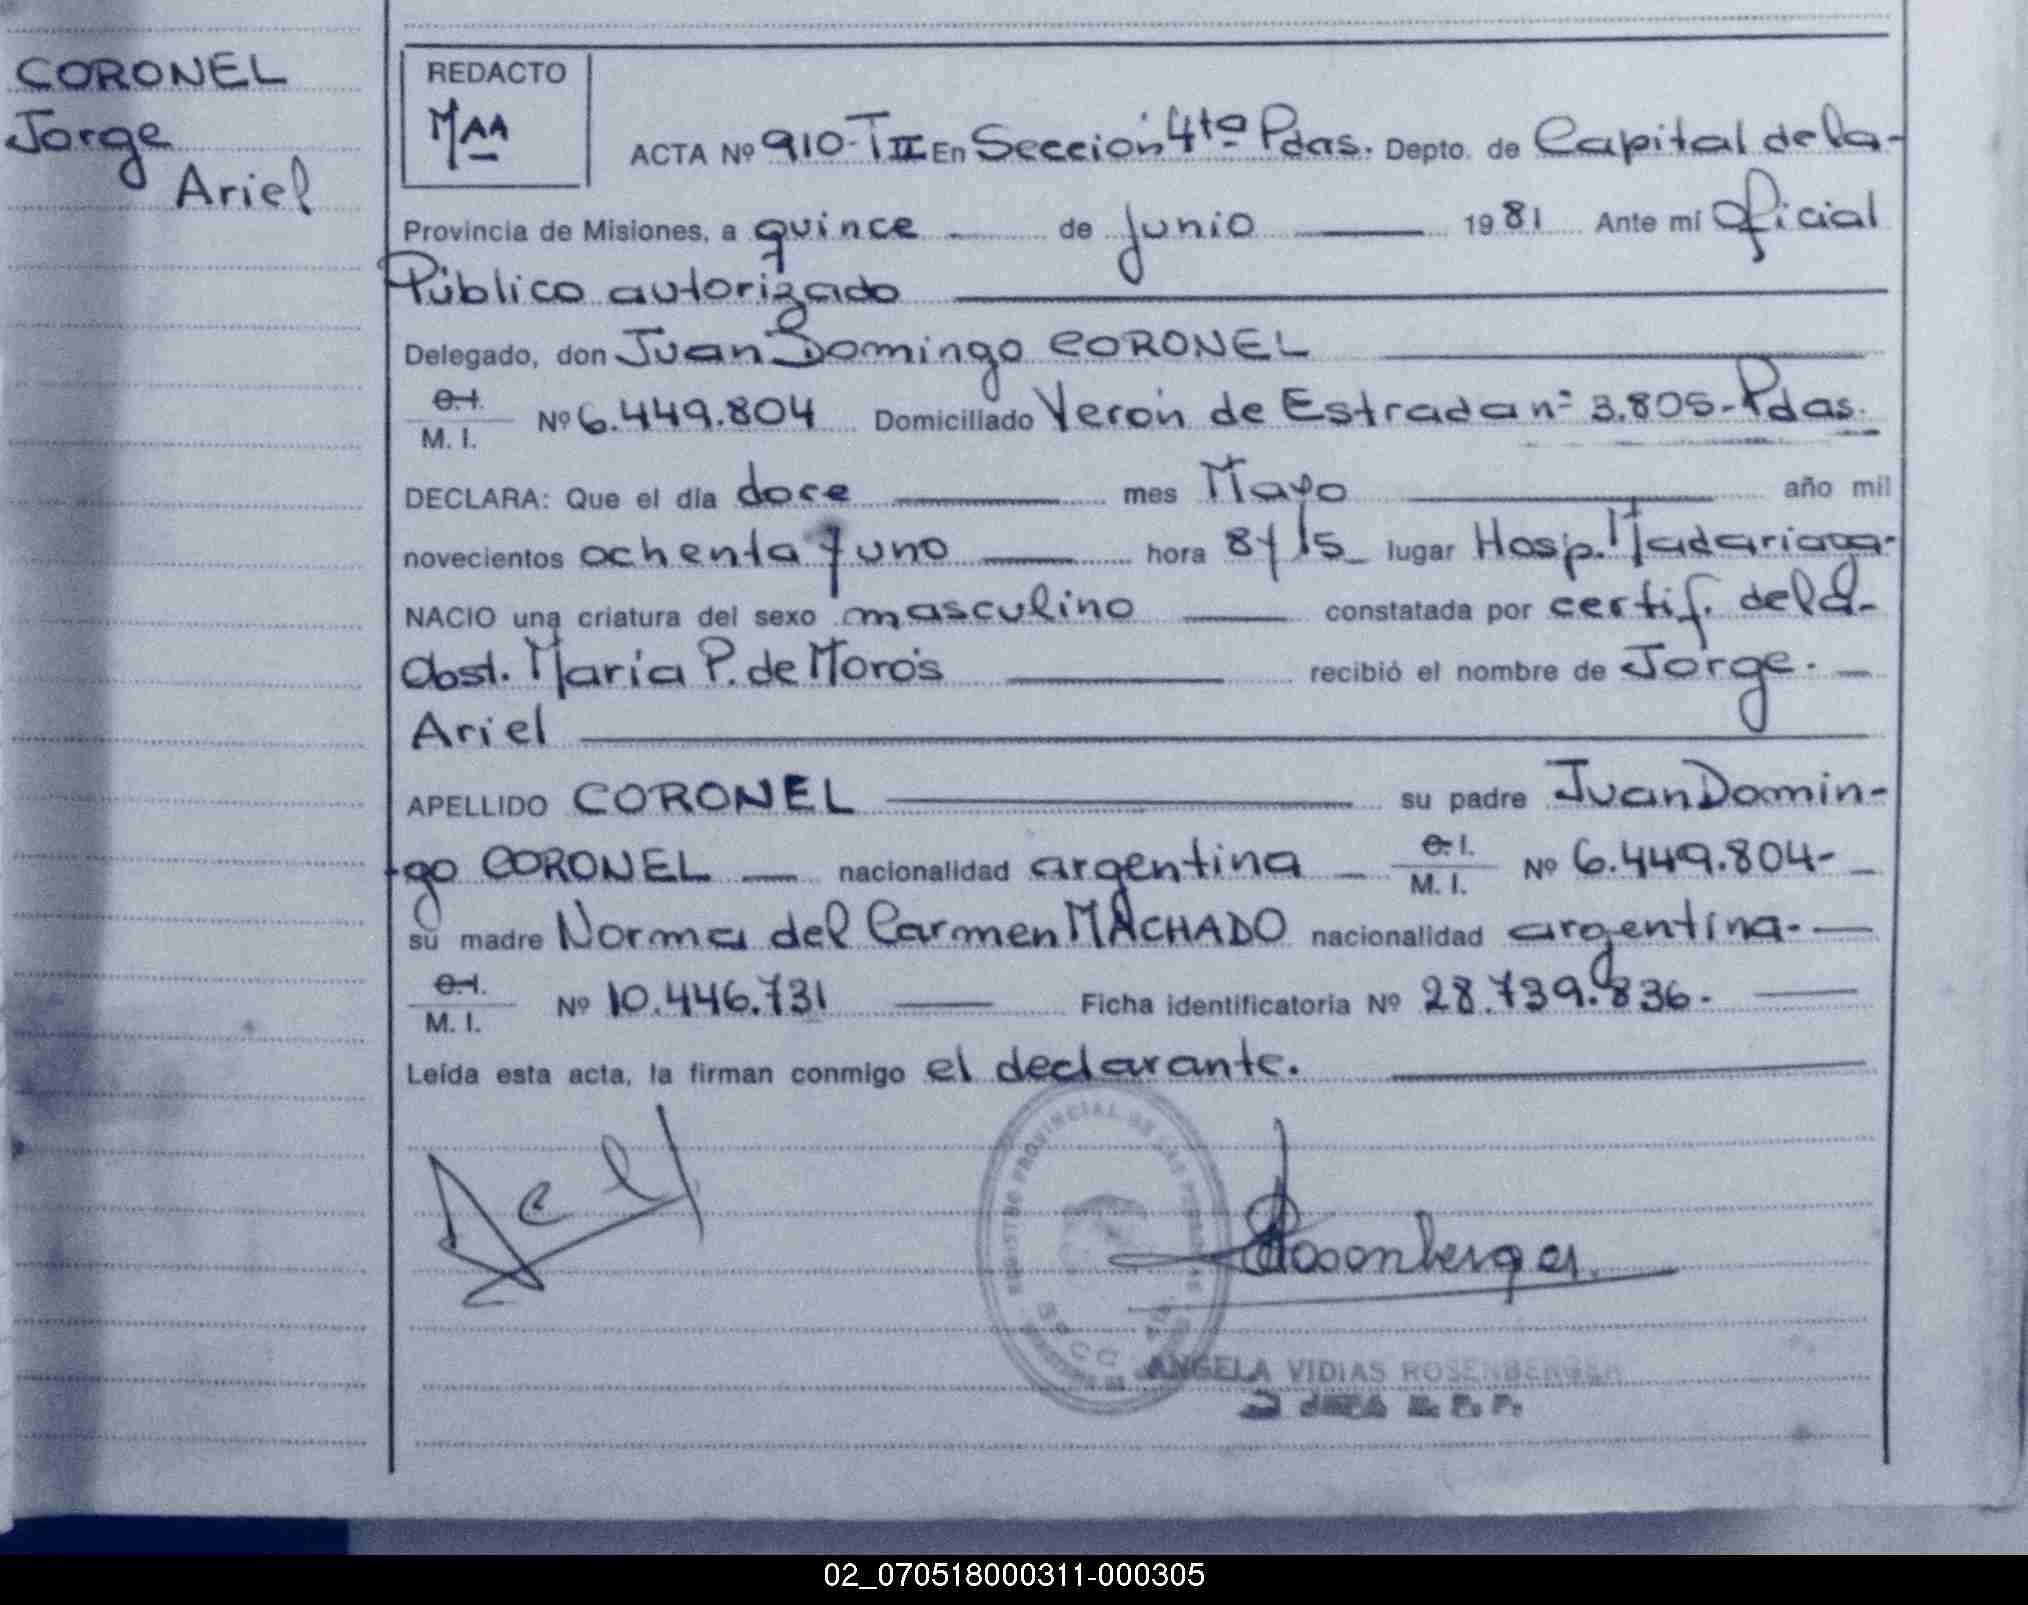 CORONEL
Jorge
Ariel
REDACTO
MAA
ACTA Nº 910-TII En Sección 4ta Pdas. Depto. de Capital de la-
Provincia de Misiones, a quince de junio 1981 Ante mí Oficial
Público autorizado
Delegado, don Juan Domingo CORONEL
C.I.
M. I. Nº 6.449.804 Domiciliado Verón de Estrada nº 3.805-Pdas.
DECLARA: Que el día doce mes Mayo año mil
novecientos ochenta y uno hora 8y15 lugar Hosp. Madariaga-
NACIO una criatura del sexo masculino constatada por certif. de la-
Obst. María P. de Morós recibió el nombre de Jorge.
Ariel
APELLIDO CORONEL su padre Juan Domin-
-go CORONEL nacionalidad argentina C.I. M. I. Nº 6.449.804-
su madre Norma del Carmen MACHADO nacionalidad argentina.-
C.I.
M. I. Nº 10.446.731 Ficha identificatoria Nº 28.739.836.
Leída esta acta, la firman conmigo el declarante.
REGISTRO PROVINCIAL DE LAS PERSONAS
SECC
Rosenberger
ANGELA VIDIAS ROSENBERGER
02_070518000311-000305